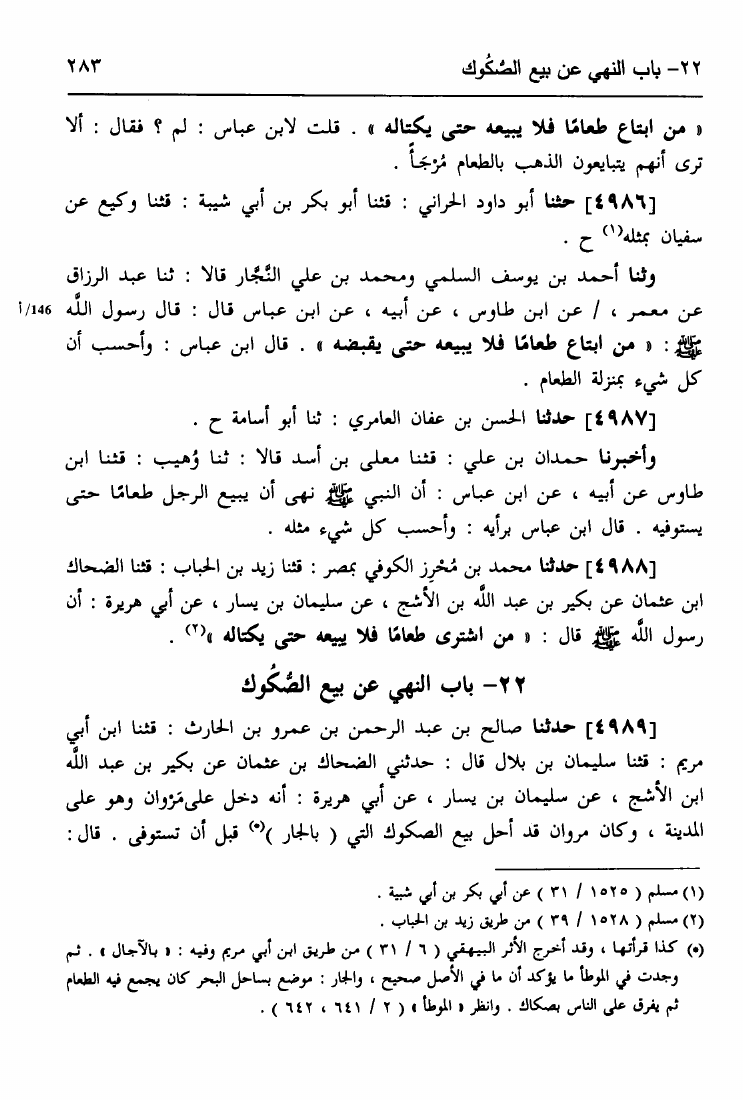 ٢٢- باب النهي عن بيع الصُّكُوك
٢٨٣
« من ابتاع طعامًا فلا يبيعه حتى يكتاله » . قلت لابن عباس : لم ؟ فقال : ألا
ترى أنهم يتبايعون الذهب بالطعام مُرْجَأً .
[٤٩٨٦] حثنا أبو داود الحراني : قثنا أبو بكر بن أبي شيبة : قثنا وكيع عن
سفيان بمثله(١) ح .
وثنا أحمد بن يوسف السلمي ومحمد بن علي النَّجَّار قالا : ثنا عبد الرزاق
عن معمر ، / عن ابن طاوس ، عن أبيه ، عن ابن عباس قال : قال رسول اللَّه
146/أ
ﷺ : « من ابتاع طعامًا فلا يبيعه حتى يقبضه » . قال ابن عباس : وأحسب أن
كل شيء بمنزلة الطعام .
[٤٩٨٧] حدثنا الحسن بن عفان العامري : ثنا أبو أسامة ح .
وأخبرنا حمدان بن علي : قثنا معلى بن أسد قالا : ثنا وُهيب : قثنا ابن
طاوس عن أبيه ، عن ابن عباس : أن النبي ﷺ نهى أن يبيع الرجل طعامًا حتى
يستوفيه . قال ابن عباس برأيه : وأحسب كل شيء مثله .
[٤٩٨٨] حدثنا محمد بن مُحْرِز الكوفي بمصر : قثنا زيد بن الحباب : قثنا الضحاك
ابن عثمان عن بكير بن عبد اللَّه بن الأشج ، عن سليمان بن يسار ، عن أبي هريرة : أن
رسول اللَّه ﷺ قال : « من اشترى طعامًا فلا يبيعه حتى يكتاله »(٢) .
٢٢- باب النهي عن بيع الصُّكُوك
[٤٩٨٩] حدثنا صالح بن عبد الرحمن بن عمرو بن الحارث : قثنا ابن أبي
مريم : قثنا سليمان بن بلال قال : حدثني الضحاك بن عثمان عن بكير بن عبد اللَّه
ابن الأشج ، عن سليمان بن يسار ، عن أبي هريرة : أنه دخل على مَرْوان وهو على
المدينة ، وكان مروان قد أحل بيع الصكوك التي ( بالجار )(*) قبل أن تستوفى . قال :
(١) مسلم ( ١٥٢٥ / ٣١ ) عن أبي بكر بن أبي شيبة .
(٢) مسلم ( ١٥٢٨ / ٣٩ ) من طريق زيد بن الحباب .
(*) كذا قرأتها ، وقد أخرج الأثر البيهقي ( ٦ / ٣١ ) من طريق ابن أبي مريم وفيه : « بالآجال » . ثم
وجدت في الموطأ ما يؤكد أن ما في الأصل صحيح ، والجار : موضع بساحل البحر كان يجمع فيه الطعام
ثم يفرق على الناس بصكاك . وانظر « الموطأ » ( ٢ / ٦٤١ ، ٦٤٢ ) .